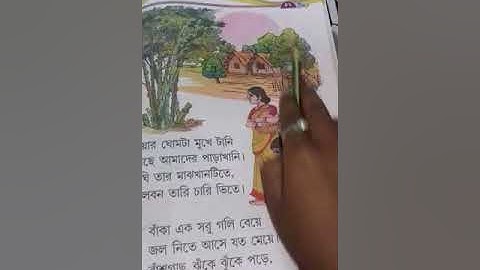 য়ার ঘোমটা মুখে টানি
ছে আমাদের পাড়াখানি।
ঘি তার মাঝখানটিতে,
লবন তারি চারি ভিতে।
বাঁকা এক সরু গলি বেয়ে
জল নিতে আসে যত মেয়ে।
বাঁশগাছ ঝুঁকে ঝুঁকে পড়ে,